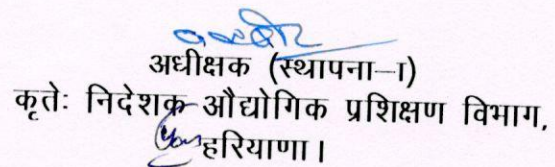 अधीक्षक (स्थापना–I)
कृतेः निदेशक औद्योगिक प्रशिक्षण विभाग,
हरियाणा।